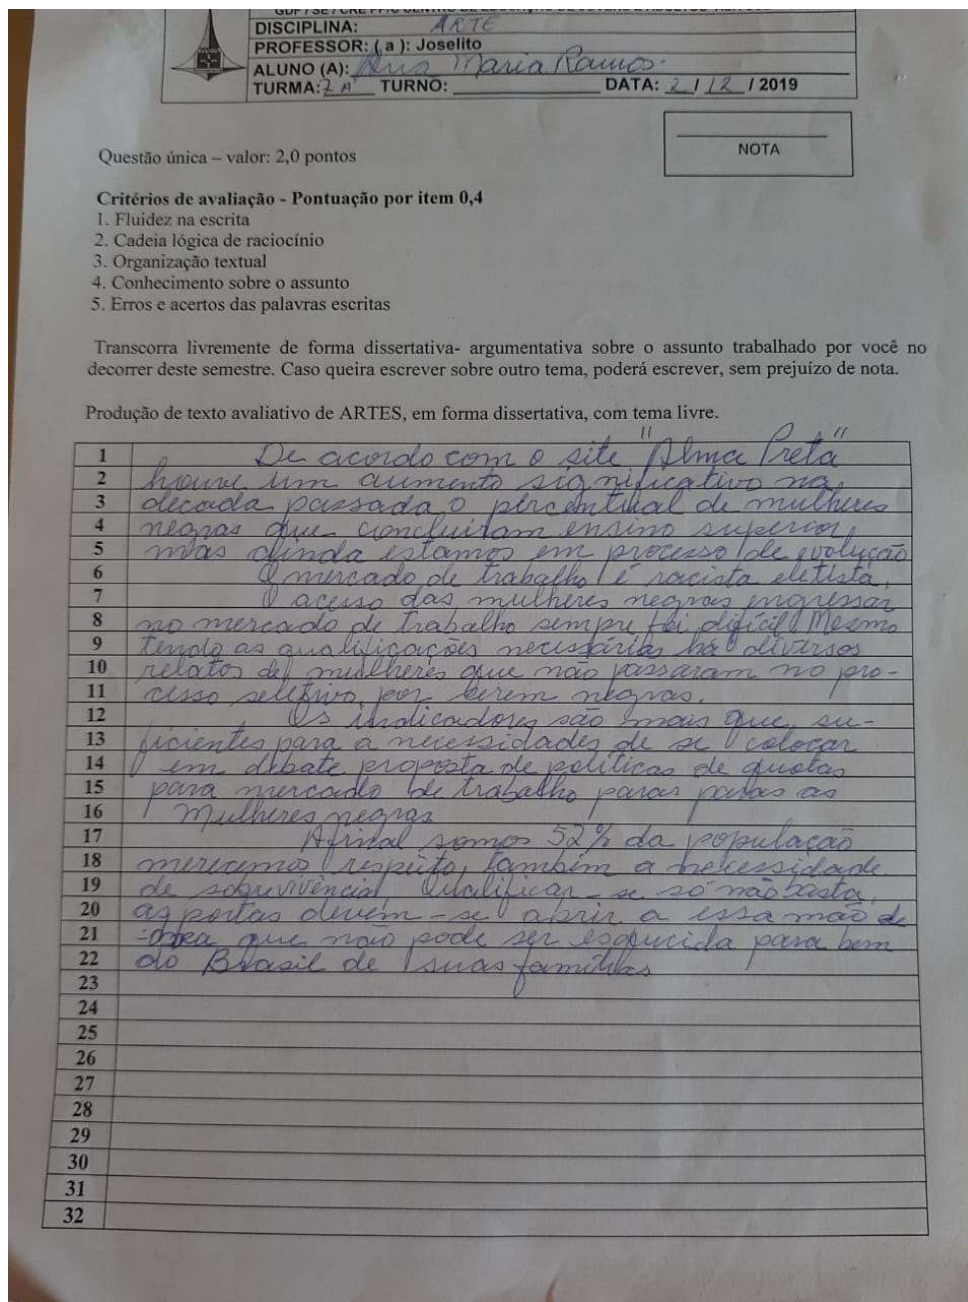 DISCIPLINA: ARTE
PROFESSOR: ( a ): Joselito
ALUNO (A): Ana Maria Ramos.
TURMA: 7 A TURNO: ____________ DATA: 2 / 12 / 2019
NOTA
Questão única – valor: 2,0 pontos
Critérios de avaliação - Pontuação por item 0,4
1. Fluidez na escrita
2. Cadeia lógica de raciocínio
3. Organização textual
4. Conhecimento sobre o assunto
5. Erros e acertos das palavras escritas
Transcorra livremente de forma dissertativa- argumentativa sobre o assunto trabalhado por você no
decorrer deste semestre. Caso queira escrever sobre outro tema, poderá escrever, sem prejuízo de nota.
Produção de texto avaliativo de ARTES, em forma dissertativa, com tema livre.
1 De acordo com o site "Alma Preta"
2 houve um aumento significativo na
3 decada passada o percentual de mulheres
4 negras que concluiram ensino superior,
5 mas ainda estamos em processo de evolução
6 O mercado de trabalho é racista eletista.
7 O acesso das mulheres negras ingressar
8 no mercado de trabalho sempre foi difícil Mesmo
9 tendo as qualificações necessárias há diversos
10 relatos de mulheres que não passaram no pro-
11 cesso seletivo, por serem negras.
12 Os indicadores são mais que su-
13 ficientes para a necessidades de se colocar
14 em debate proposta de políticas de quotas
15 para mercado de trabalho paras as
16 Mulheres negras
17 Afinal somos 52% da população
18 merecemos respeito, também a necessidade
19 de sobrevivência, Qualificar-se só não basta,
20 as portas devem-se abrir a essa mão de
21 -obra que não pode ser esquecida para bem
22 do Brasil de suas famílias
23
24
25
26
27
28
29
30
31
32